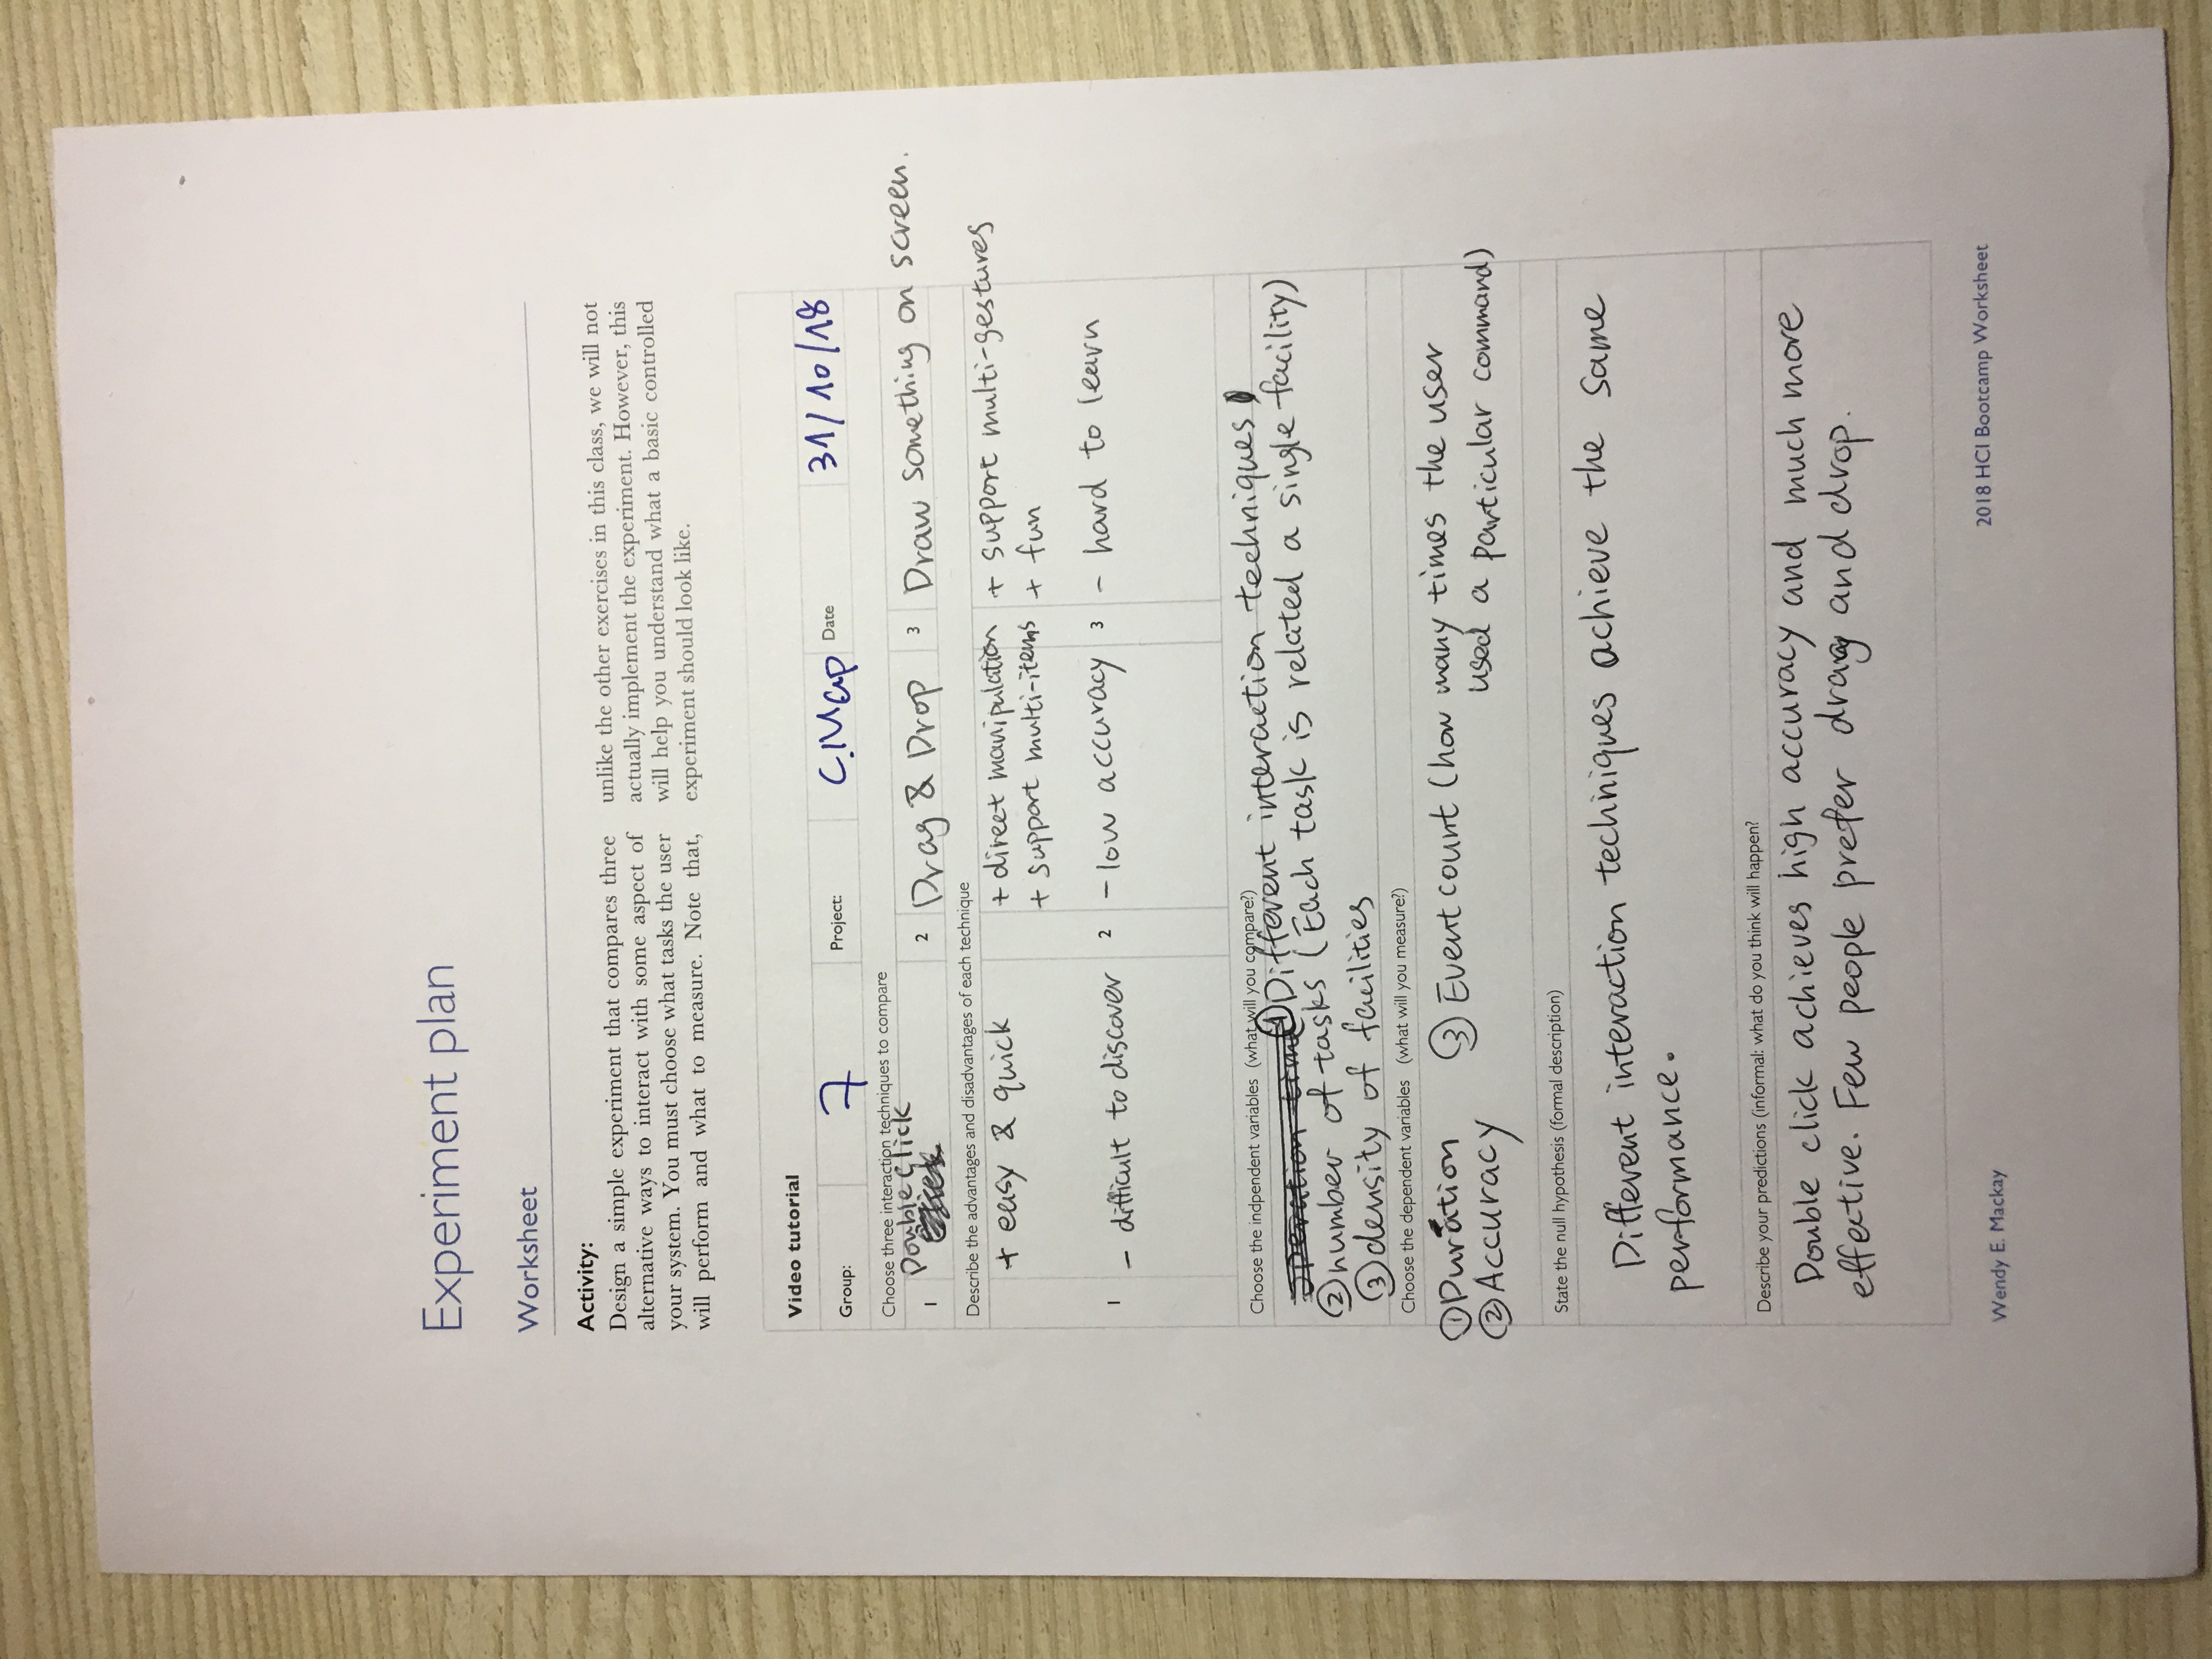 Experiment plan
Worksheet
Activity:
Design a simple experiment that compares three
alternative ways to interact with some aspect of
your system. You must choose what tasks the user
will perform and what to measure. Note that,
unlike the other exercises in this class, we will not
actually implement the experiment. However, this
will help you understand what a basic controlled
experiment should look like.
Video tutorial
Group: 7 Project: C.Map Date 31/10/18
Choose three interaction techniques to compare
1 Double click 2 Drag & Drop 3 Draw something on screen.
Describe the advantages and disadvantages of each technique
1
+ easy & quick
- difficult to discover
2
+ direct manipulation
+ support multi-items
- low accuracy
3
+ support multi-gestures
+ fun
- hard to learn
Choose the indpendent variables (what will you compare?)
Operation time ① Different interaction techniques
② number of tasks (Each task is related a single facility)
③ density of facilities
Choose the dependent variables (what will you measure?)
① Duration
② Accuracy
③ Event count (how many times the user
used a particular command)
State the null hypothesis (formal description)
Different interaction techniques achieve the same
performance.
Describe your predictions (informal: what do you think will happen?
Double click achieves high accuracy and much more
effective. Few people prefer drag and drop.
Wendy E. Mackay
2018 HCI Bootcamp Worksheet